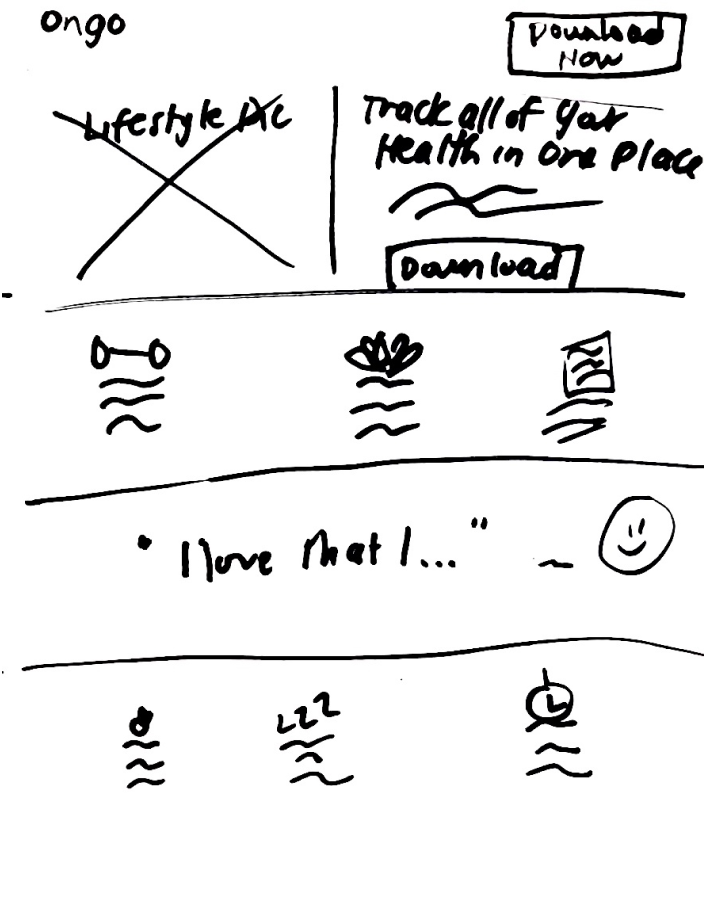 Ongo
Download
Now
Lifestyle Pic
Track all of your
Health in One Place
Download
"I love that I..." ~
zzz